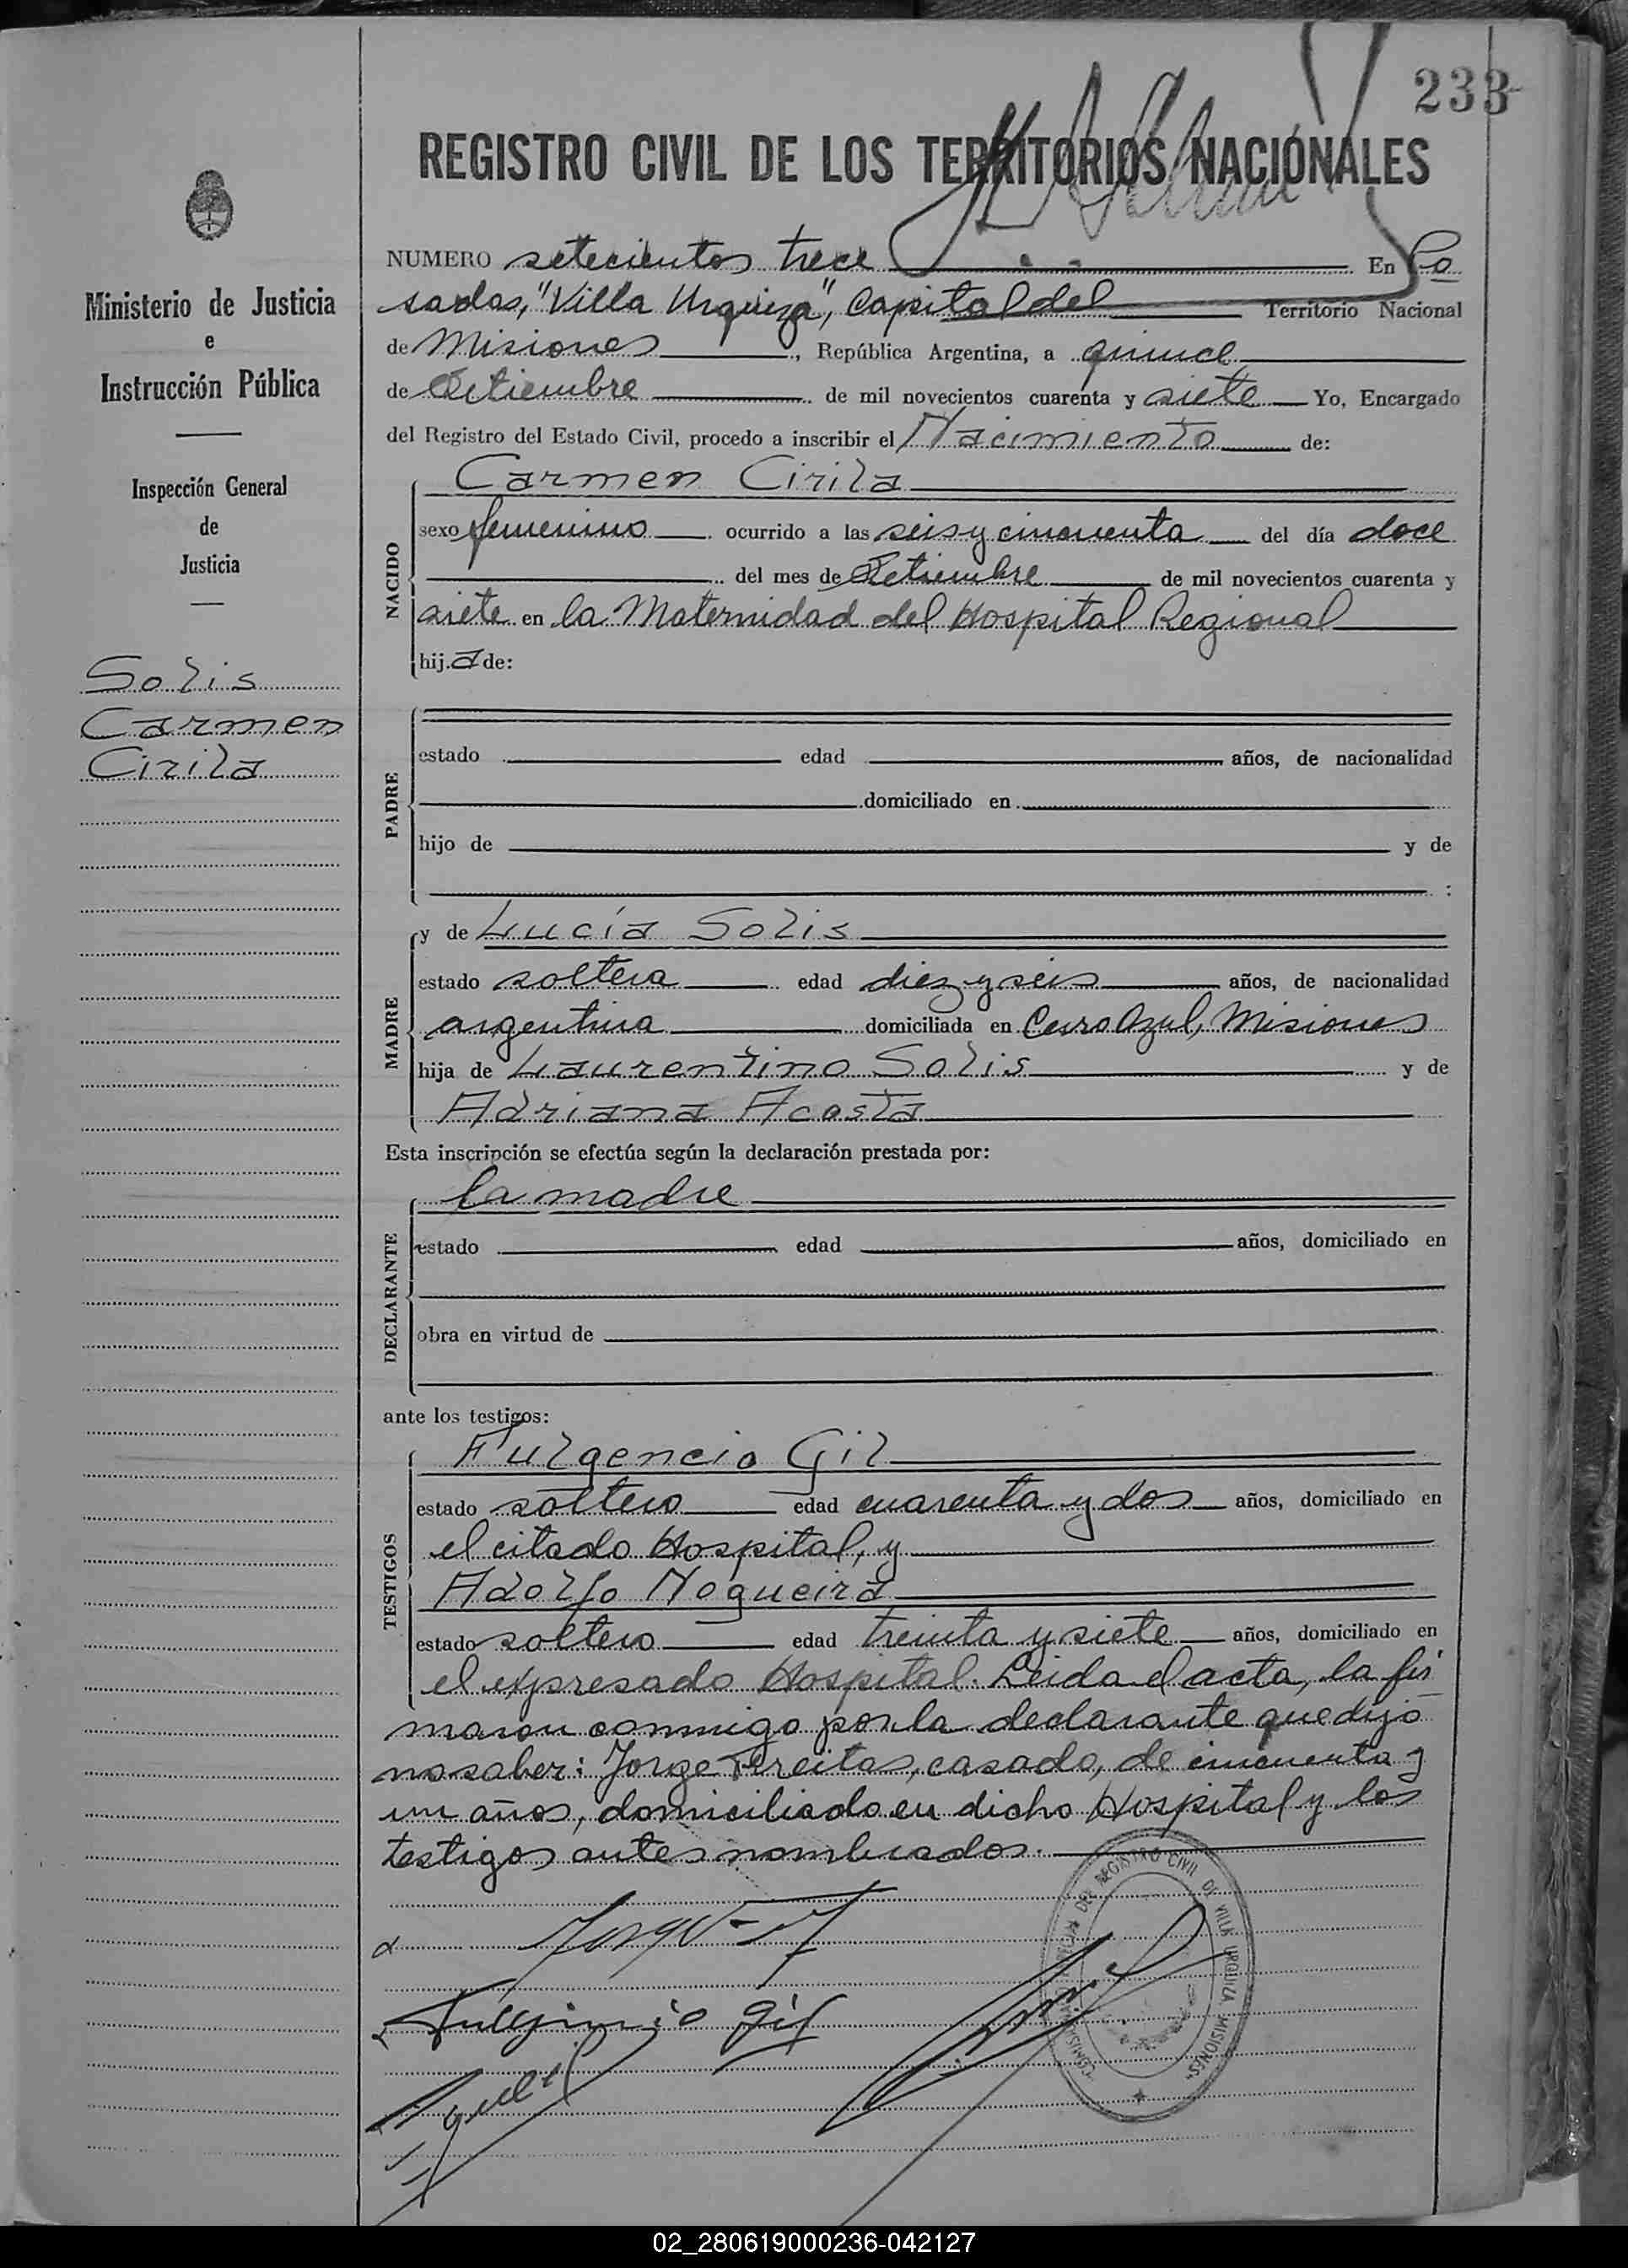 233
REGISTRO CIVIL DE LOS TERRITORIOS NACIONALES
Ministerio de Justicia
e
Instrucción Pública
Inspección General
de
Justicia
Solis
Carmen
Cirila
NUMERO setecientos trece En Po
sadas, "Villa Urquiza", Capital del Territorio Nacional
de Misiones, República Argentina, a quince
de Setiembre de mil novecientos cuarenta y siete Yo, Encargado
del Registro del Estado Civil, procedo a inscribir el Nacimiento de:
Carmen Cirila
NACIDO
sexo femenino ocurrido a las seis y cincuenta del día doce
del mes de Setiembre de mil novecientos cuarenta y
siete en la Maternidad del Hospital Regional
hij.a de:
PADRE
estado edad años, de nacionalidad
domiciliado en
hijo de y de
:
y de Lucía Solis
MADRE
estado soltera edad diez y seis años, de nacionalidad
argentina domiciliada en Cerro Azul, Misiones
hija de Laurentino Solis y de
Adriana Acosta
Esta inscripción se efectúa según la declaración prestada por:
la madre
DECLARANTE
estado edad años, domiciliado en
obra en virtud de
ante los testigos:
Fulgencio Gil
TESTIGOS
estado soltero edad cuarenta y dos años, domiciliado en
el citado Hospital, y
Adolfo Nogueira
estado soltero edad treinta y siete años, domiciliado en
el expresado Hospital. Leida el acta, la fir
maron conmigo por la declarante que dijo
no saber: Jorge Freitas, casado, de cincuenta y
un años, domiciliado en dicho Hospital y los
testigos antes nombrados.
Jorge
Fulgencio Gil
DEL REGISTRO CIVIL DE VILLA URQUIZA MISIONES
02_280619000236-042127